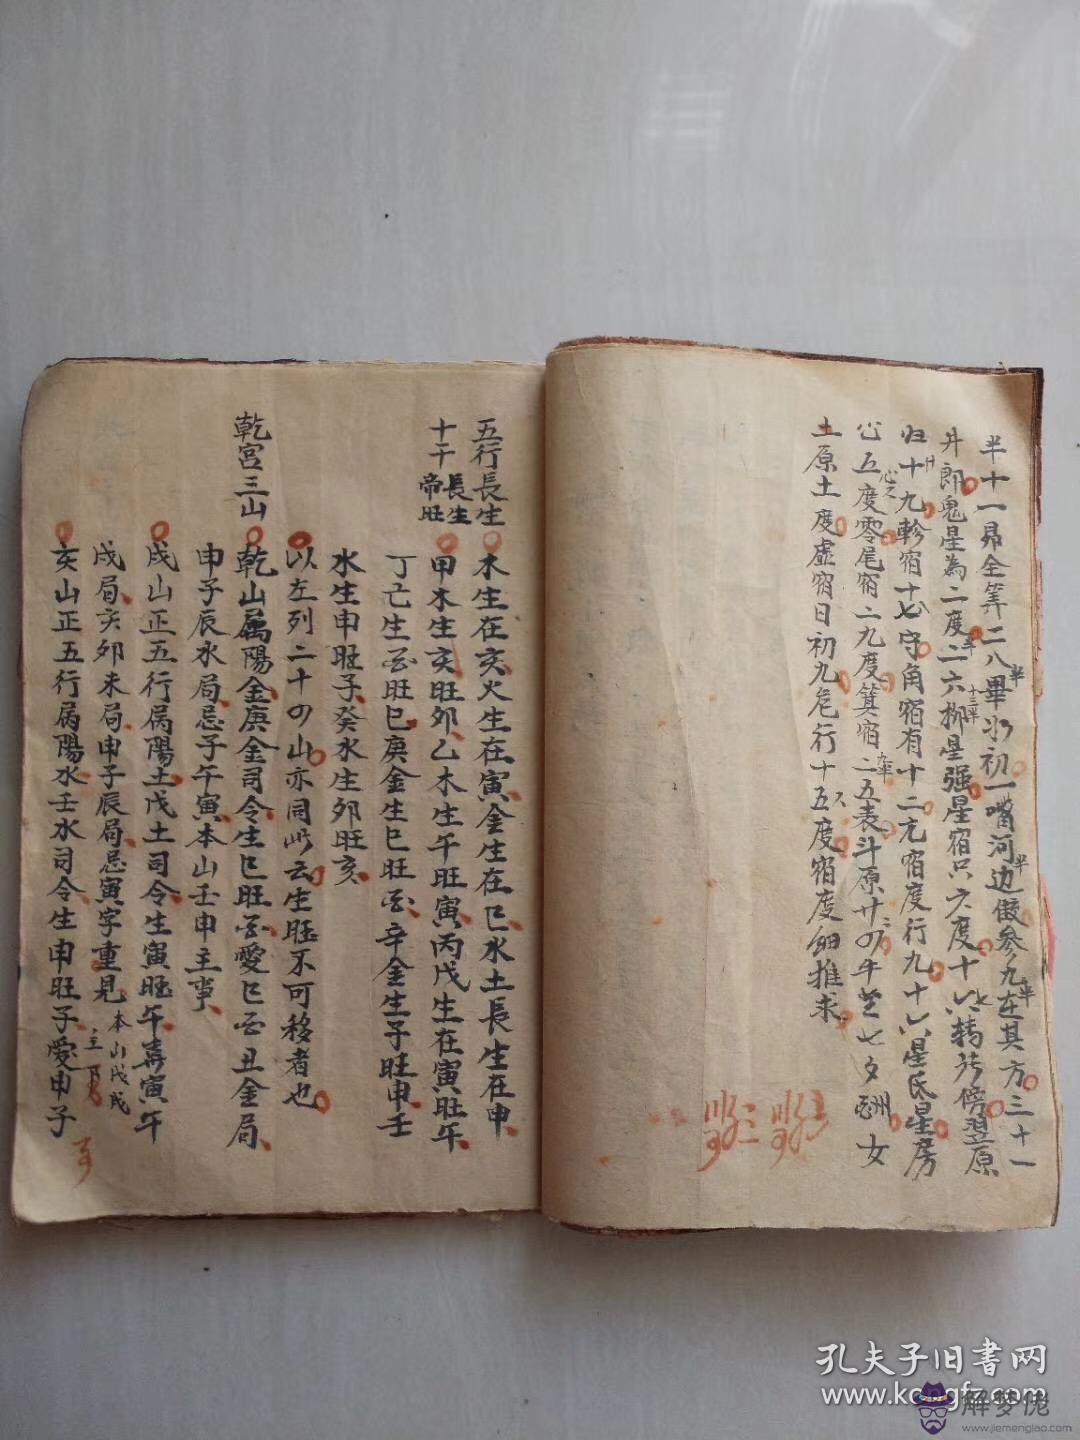 半十一昴全筭二八畢氷初一嘴河边傲参九在其方三十一
半
半
半
井郎鬼星為二度二六柳星强星宿只六度十八精於傍翌原
半
十三半
七
归十九軫宿十七守角宿有十二亢宿度行九十六星氐星房
廿
八
心五度零尾宿二九度箕宿二五表斗原廿四牛芒七夕酬女
心之
九半
土原土度虚宿日初九危行十五度宿度細推求
五行長生
木生在亥火生在寅金生在巳水土長生在申
十干
長生
帝旺
甲木生亥旺卯乙木生午旺寅丙戊生在寅旺午
丁己生酉旺巳庚金生巳旺酉辛金生子旺申壬
水生申旺子癸水生卯旺亥
以左列二十四山亦同此云生旺不可移者也
乾宫三山
乾山属陽金庚金司令生巳旺酉愛巳酉丑金局
申子辰水局忌子午寅本山壬申主事
戌山正五行属陽土戊土司令生寅旺午喜寅午
戌局亥卯未局申子辰局忌寅字重見
本山戊戌
主事
亥山正五行属陽水壬水司令生申旺子愛申子
孔夫子旧書网
www.kongfz.com
解梦佬
www.jiemenglao.com